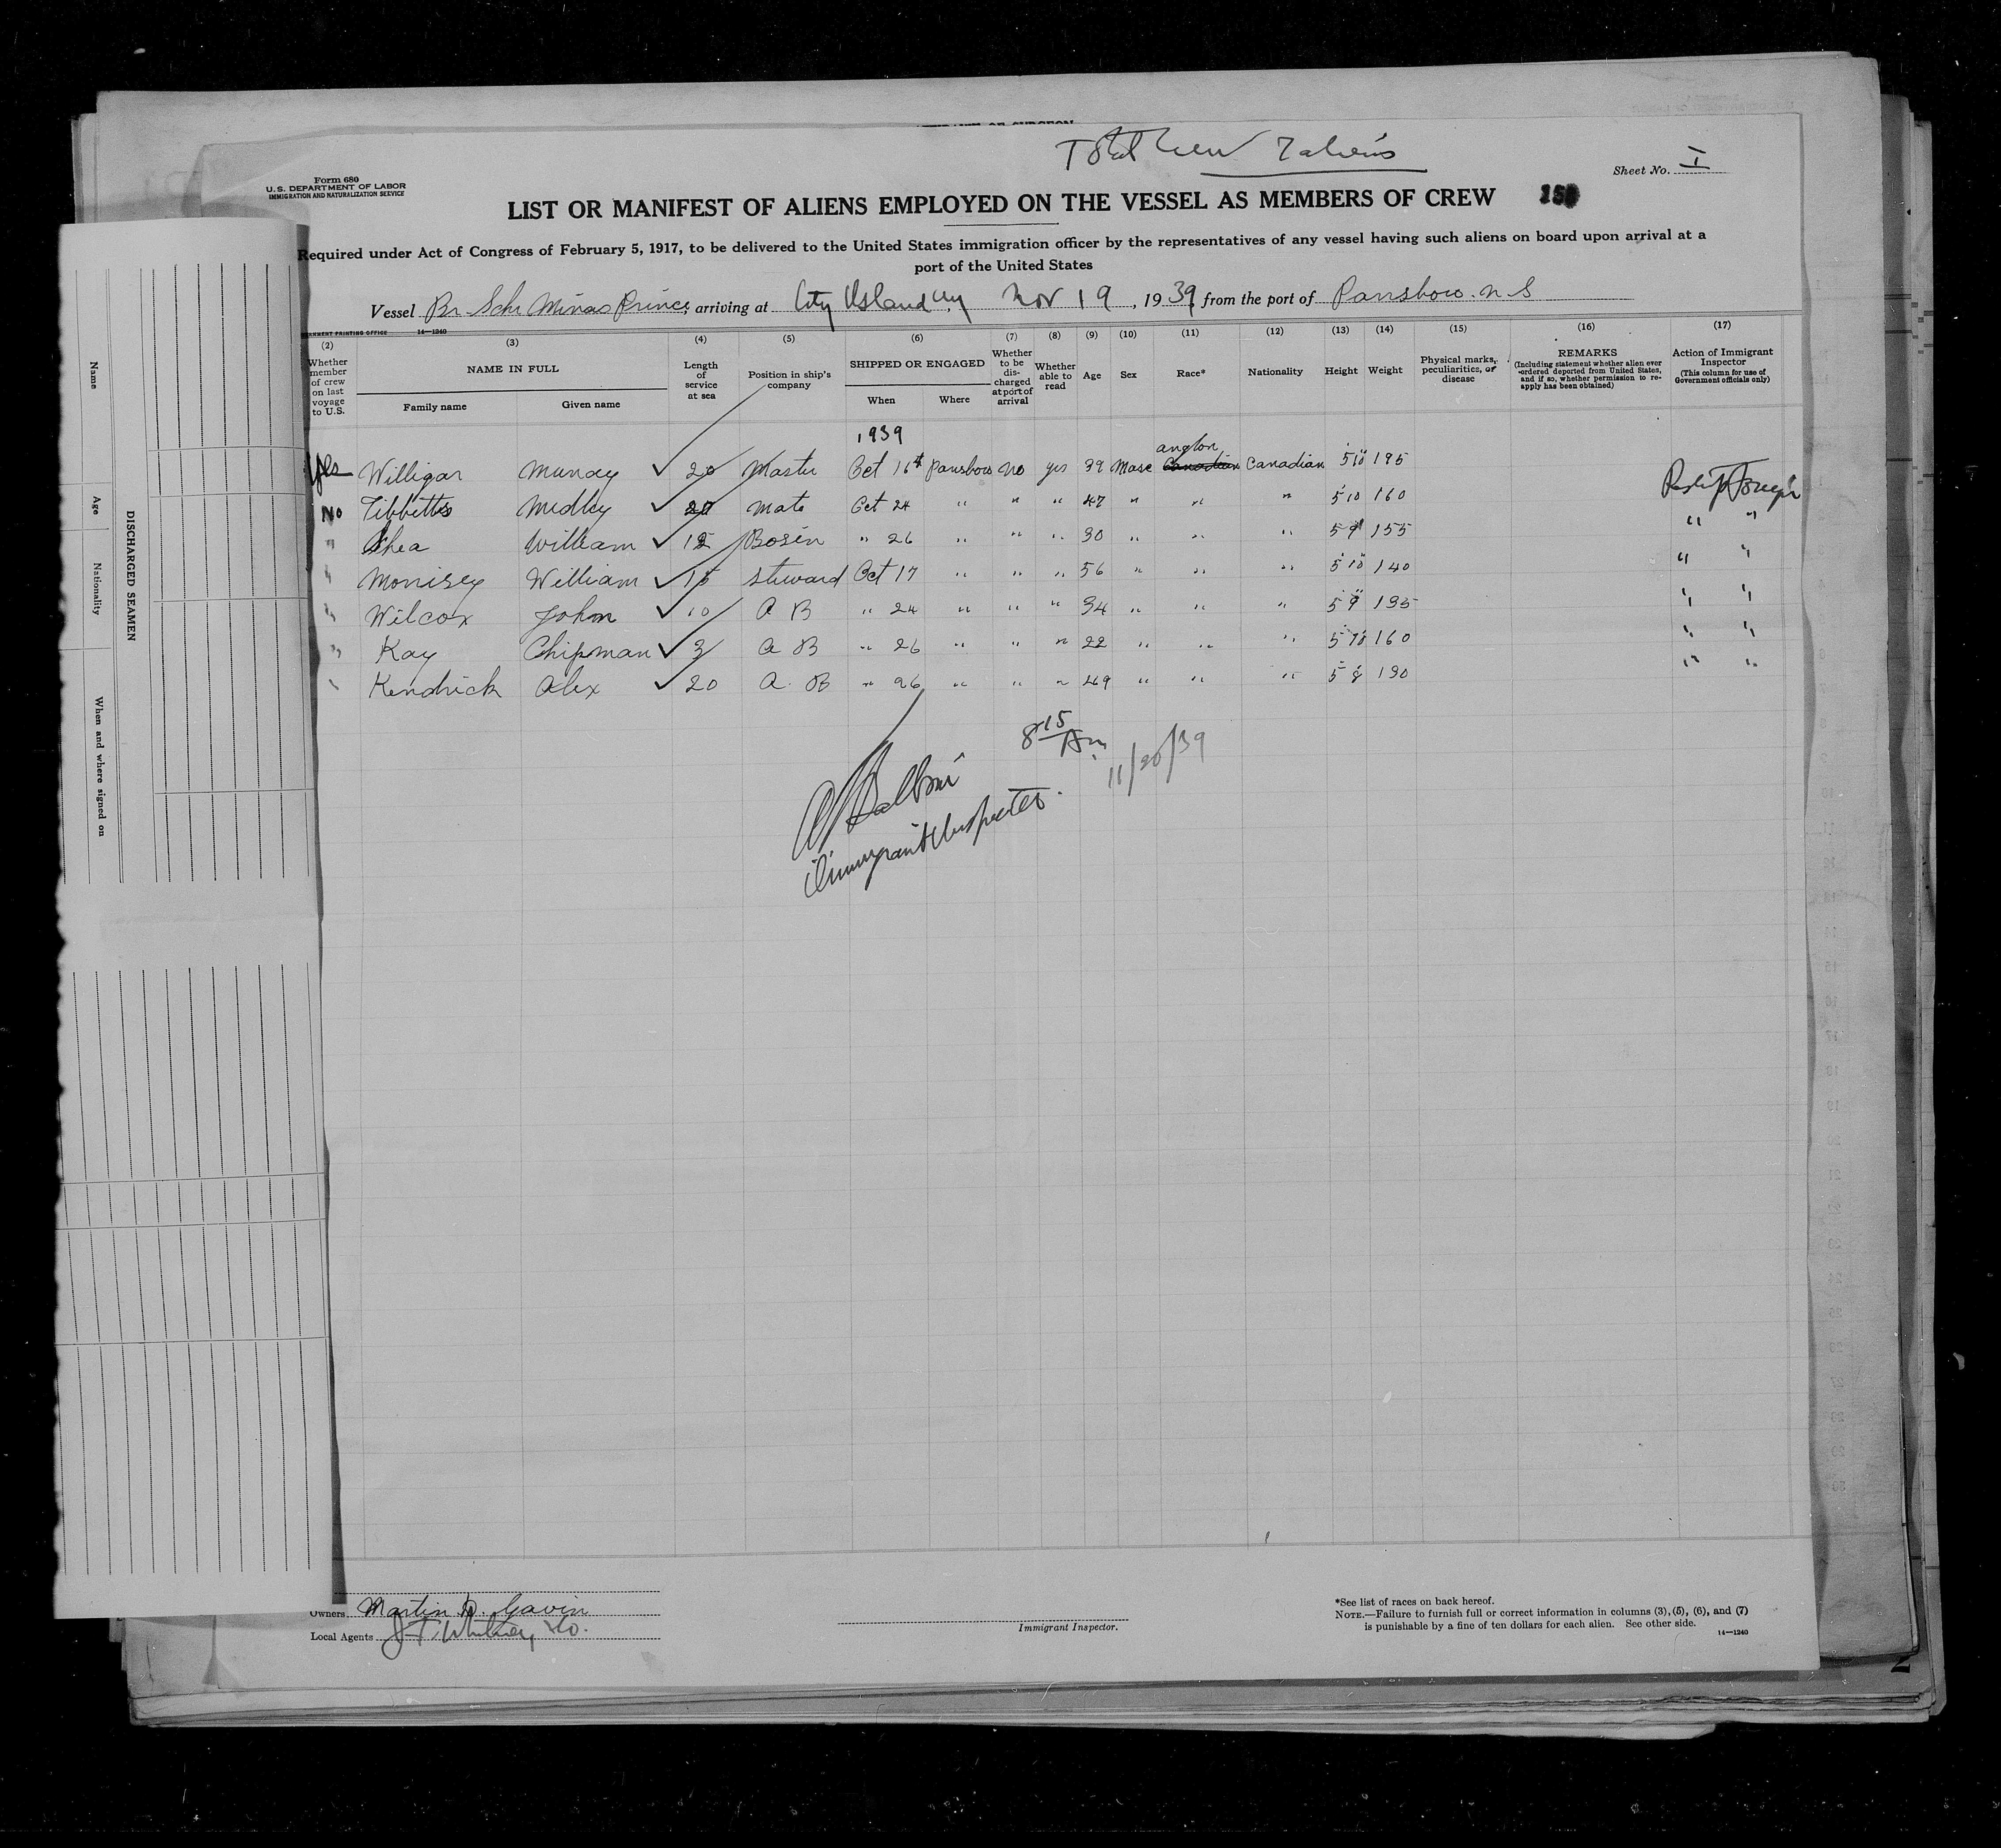 Total Crew 7 aliens
Form 680
U.S. DEPARTMENT OF LABOR
IMMIGRATION AND NATURALIZATION SERVICE
Sheet No. I
LIST OR MANIFEST OF ALIENS EMPLOYED ON THE VESSEL AS MEMBERS OF CREW
Required under Act of Congress of February 5, 1917, to be delivered to the United States immigration officer by the representatives of any vessel having such aliens on board upon arrival at a
port of the United States
Vessel Br Schr Minas Prince, arriving at City Island, NY Nov 19, 1939, from the port of Parrsboro. N S
14—1240
(2) (3) (4) (5) (6) (7) (8) (9) (10) (11) (12) (13) (14) (15) (16) (17)
Whether member of crew on last voyage to U.S.
NAME IN FULL
Family name Given name
Length of service at sea
Position in ship's company
SHIPPED OR ENGAGED
When Where
Whether to be discharged at port of arrival
Whether able to read
Age
Sex
Race*
Nationality
Height
Weight
Physical marks, peculiarities, or disease
REMARKS
(Including statement whether alien ever ordered deported from United States, and if so, whether permission to reapply has been obtained)
Action of Immigrant Inspector
(This column for use of Government officials only)
1939
anglon
Yes Willigar Murray ✓ 20 Master Oct 16th Parrsboro No yes 39 Male Canadian Canadian 5 10 195
No Tibbetts Medley ✓ 20 Mate Oct 24 " " " 47 " " " 5 10 160
" Shea William ✓ 12 Bosen " 26 " " " 30 " " " 5 9 155 " "
" Morrisey William ✓ 15 Steward Oct 17 " " " 56 " " " 5 10 140 " "
" Wilcox John ✓ 10 A B " 24 " " " 34 " " " 5 9 195 " "
" Kay Chipman ✓ 3 A B " 26 " " " 22 " " " 5 10 160 " "
" Kendrick Alex ✓ 20 A. B " 26 " " " 49 " " " 5 8 190 " "
8 15 Am
11/20/39
Immigrant Inspector.
Name
Age
Nationality
When and where signed on
DISCHARGED SEAMEN
Owners Martin D. Gavin
Local Agents J. T. Whitney, Co.
Immigrant Inspector.
*See list of races on back hereof.
NOTE.—Failure to furnish full or correct information in columns (3), (5), (6), and (7)
is punishable by a fine of ten dollars for each alien. See other side.
14—1240